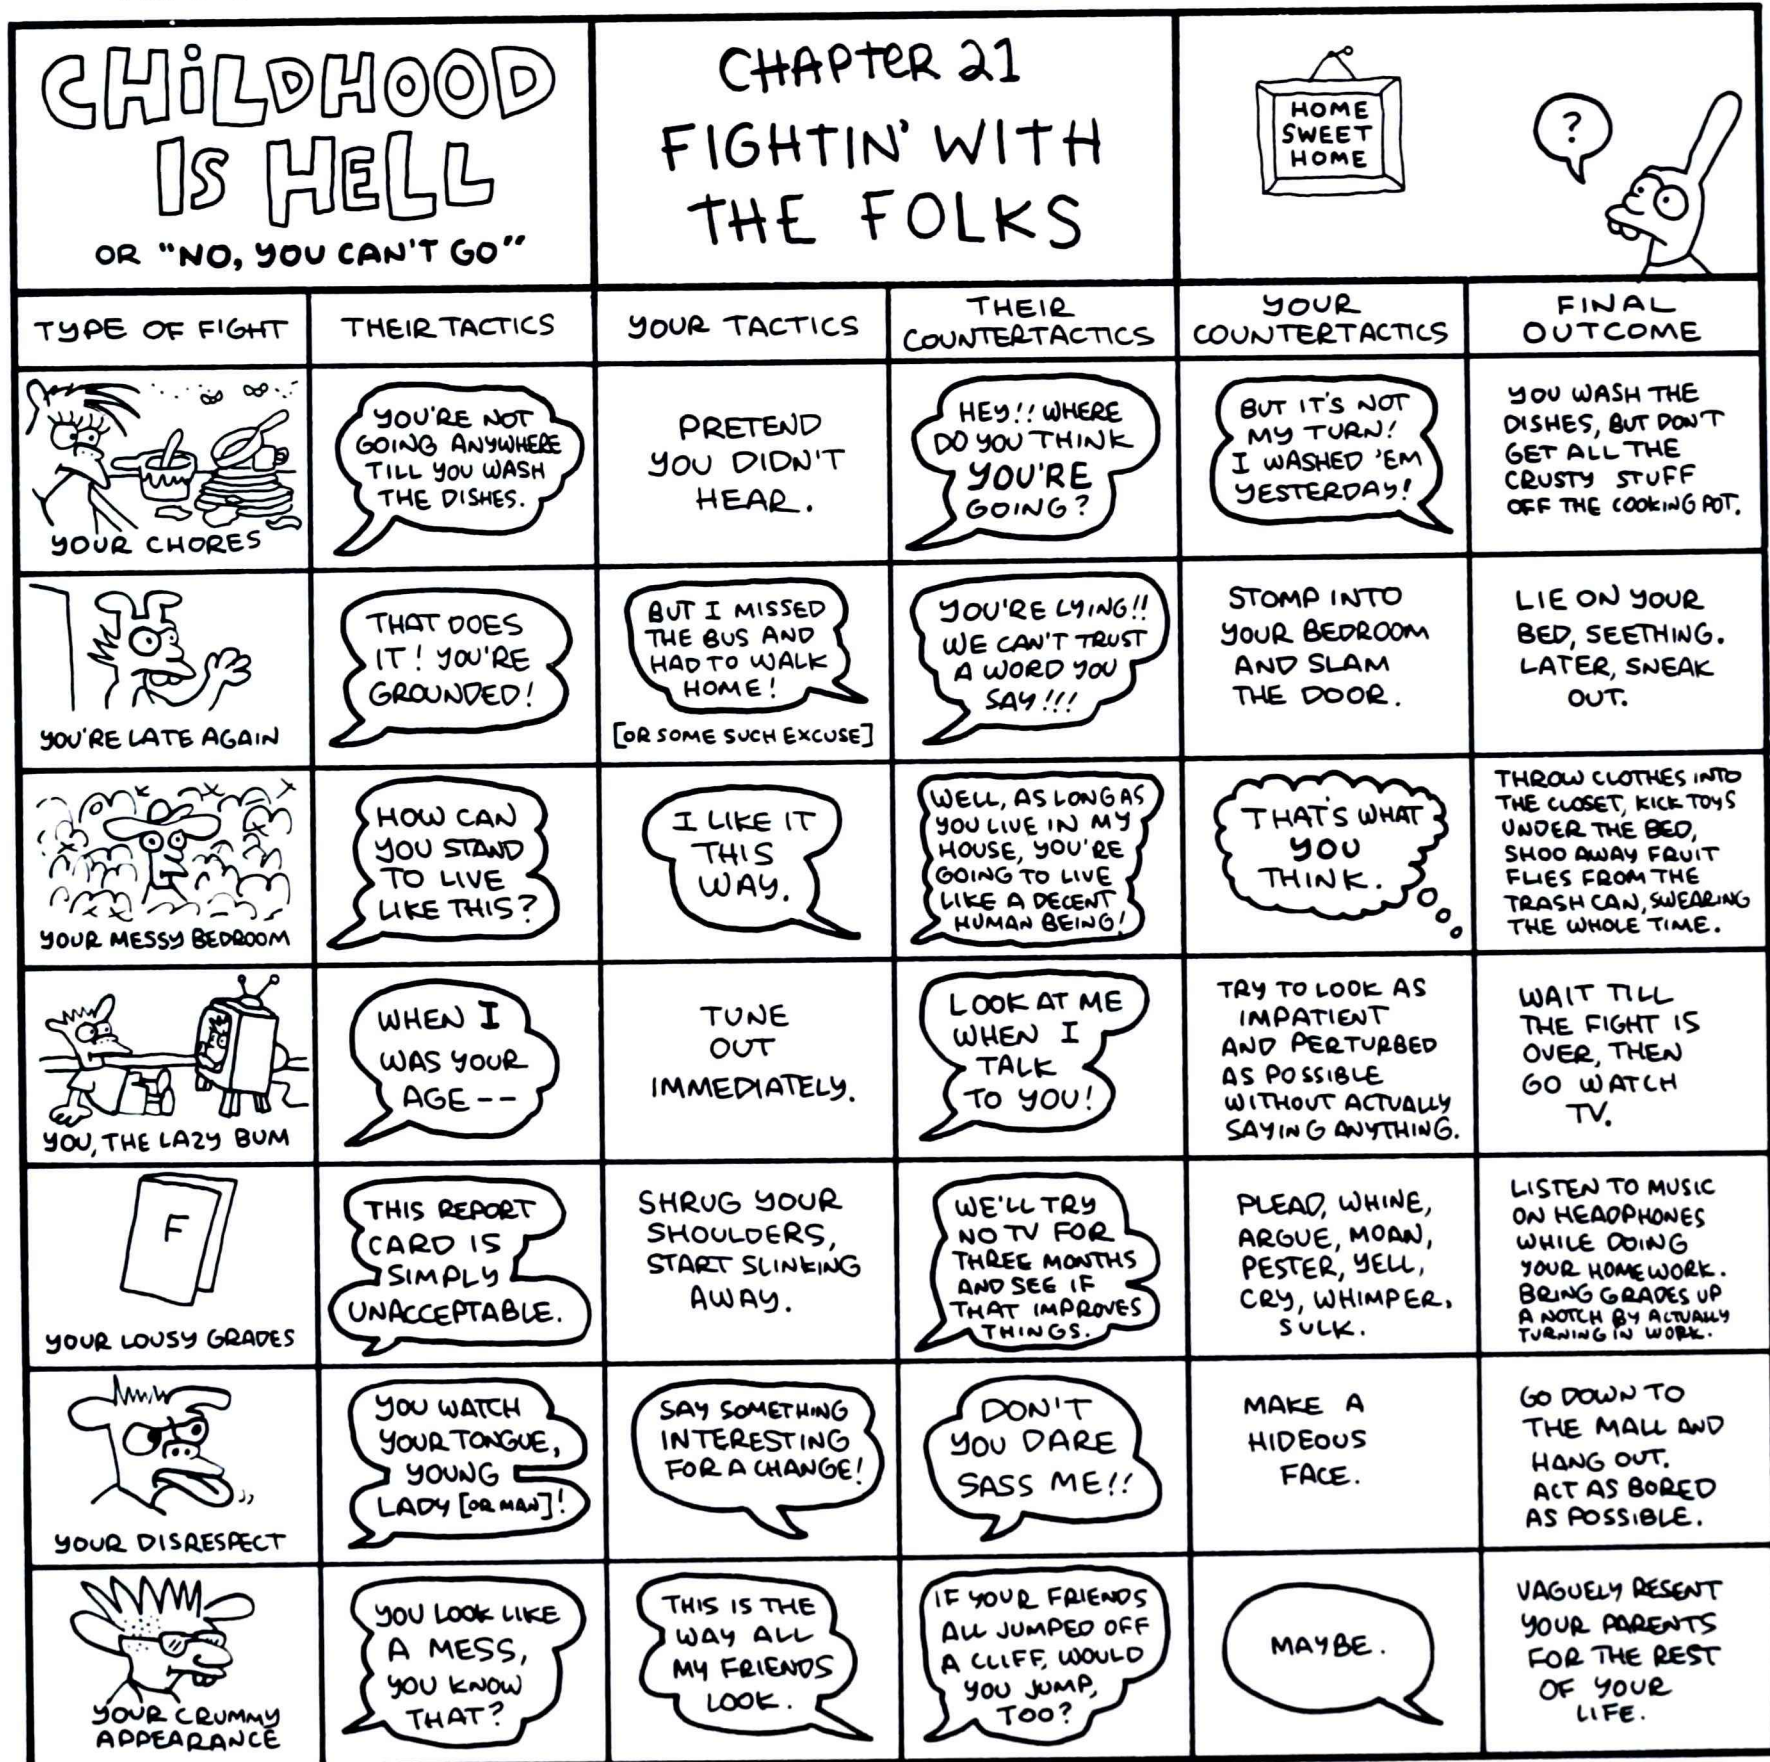 CHILDHOOD
IS HELL
OR "NO, YOU CAN'T GO"
CHAPTER 21
FIGHTIN' WITH
THE FOLKS
HOME
SWEET
HOME
?
TYPE OF FIGHT
THEIR TACTICS
YOUR TACTICS
THEIR
COUNTERTACTICS
YOUR
COUNTERTACTICS
FINAL
OUTCOME
YOUR CHORES
YOU'RE NOT
GOING ANYWHERE
TILL YOU WASH
THE DISHES.
PRETEND
YOU DIDN'T
HEAR.
HEY!! WHERE
DO YOU THINK
YOU'RE
GOING?
BUT IT'S NOT
MY TURN!
I WASHED 'EM
YESTERDAY!
YOU WASH THE
DISHES, BUT DON'T
GET ALL THE
CRUSTY STUFF
OFF THE COOKING POT.
YOU'RE LATE AGAIN
THAT DOES
IT! YOU'RE
GROUNDED!
BUT I MISSED
THE BUS AND
HAD TO WALK
HOME!
[OR SOME SUCH EXCUSE]
YOU'RE LYING!!
WE CAN'T TRUST
A WORD YOU
SAY!!!
STOMP INTO
YOUR BEDROOM
AND SLAM
THE DOOR.
LIE ON YOUR
BED, SEETHING.
LATER, SNEAK
OUT.
YOUR MESSY BEDROOM
HOW CAN
YOU STAND
TO LIVE
LIKE THIS?
I LIKE IT
THIS
WAY.
WELL, AS LONG AS
YOU LIVE IN MY
HOUSE, YOU'RE
GOING TO LIVE
LIKE A DECENT
HUMAN BEING!
THAT'S WHAT
YOU
THINK.
THROW CLOTHES INTO
THE CLOSET, KICK TOYS
UNDER THE BED,
SHOO AWAY FRUIT
FLIES FROM THE
TRASH CAN, SWEARING
THE WHOLE TIME.
YOU, THE LAZY BUM
WHEN I
WAS YOUR
AGE--
TUNE
OUT
IMMEDIATELY.
LOOK AT ME
WHEN I
TALK
TO YOU!
TRY TO LOOK AS
IMPATIENT
AND PERTURBED
AS POSSIBLE
WITHOUT ACTUALLY
SAYING ANYTHING.
WAIT TILL
THE FIGHT IS
OVER, THEN
GO WATCH
TV.
F
YOUR LOUSY GRADES
THIS REPORT
CARD IS
SIMPLY
UNACCEPTABLE.
SHRUG YOUR
SHOULDERS,
START SLINKING
AWAY.
WE'LL TRY
NO TV FOR
THREE MONTHS
AND SEE IF
THAT IMPROVES
THINGS.
PLEAD, WHINE,
ARGUE, MOAN,
PESTER, YELL,
CRY, WHIMPER,
SULK.
LISTEN TO MUSIC
ON HEADPHONES
WHILE DOING
YOUR HOMEWORK.
BRING GRADES UP
A NOTCH BY ACTUALLY
TURNING IN WORK.
YOUR DISRESPECT
YOU WATCH
YOUR TONGUE,
YOUNG
LADY [OR MAN]!
SAY SOMETHING
INTERESTING
FOR A CHANGE!
DON'T
YOU DARE
SASS ME!!
MAKE A
HIDEOUS
FACE.
GO DOWN TO
THE MALL AND
HANG OUT.
ACT AS BORED
AS POSSIBLE.
YOUR CRUMMY
APPEARANCE
YOU LOOK LIKE
A MESS,
YOU KNOW
THAT?
THIS IS THE
WAY ALL
MY FRIENDS
LOOK.
IF YOUR FRIENDS
ALL JUMPED OFF
A CLIFF, WOULD
YOU JUMP,
TOO?
MAYBE.
VAGUELY RESENT
YOUR PARENTS
FOR THE REST
OF YOUR
LIFE.